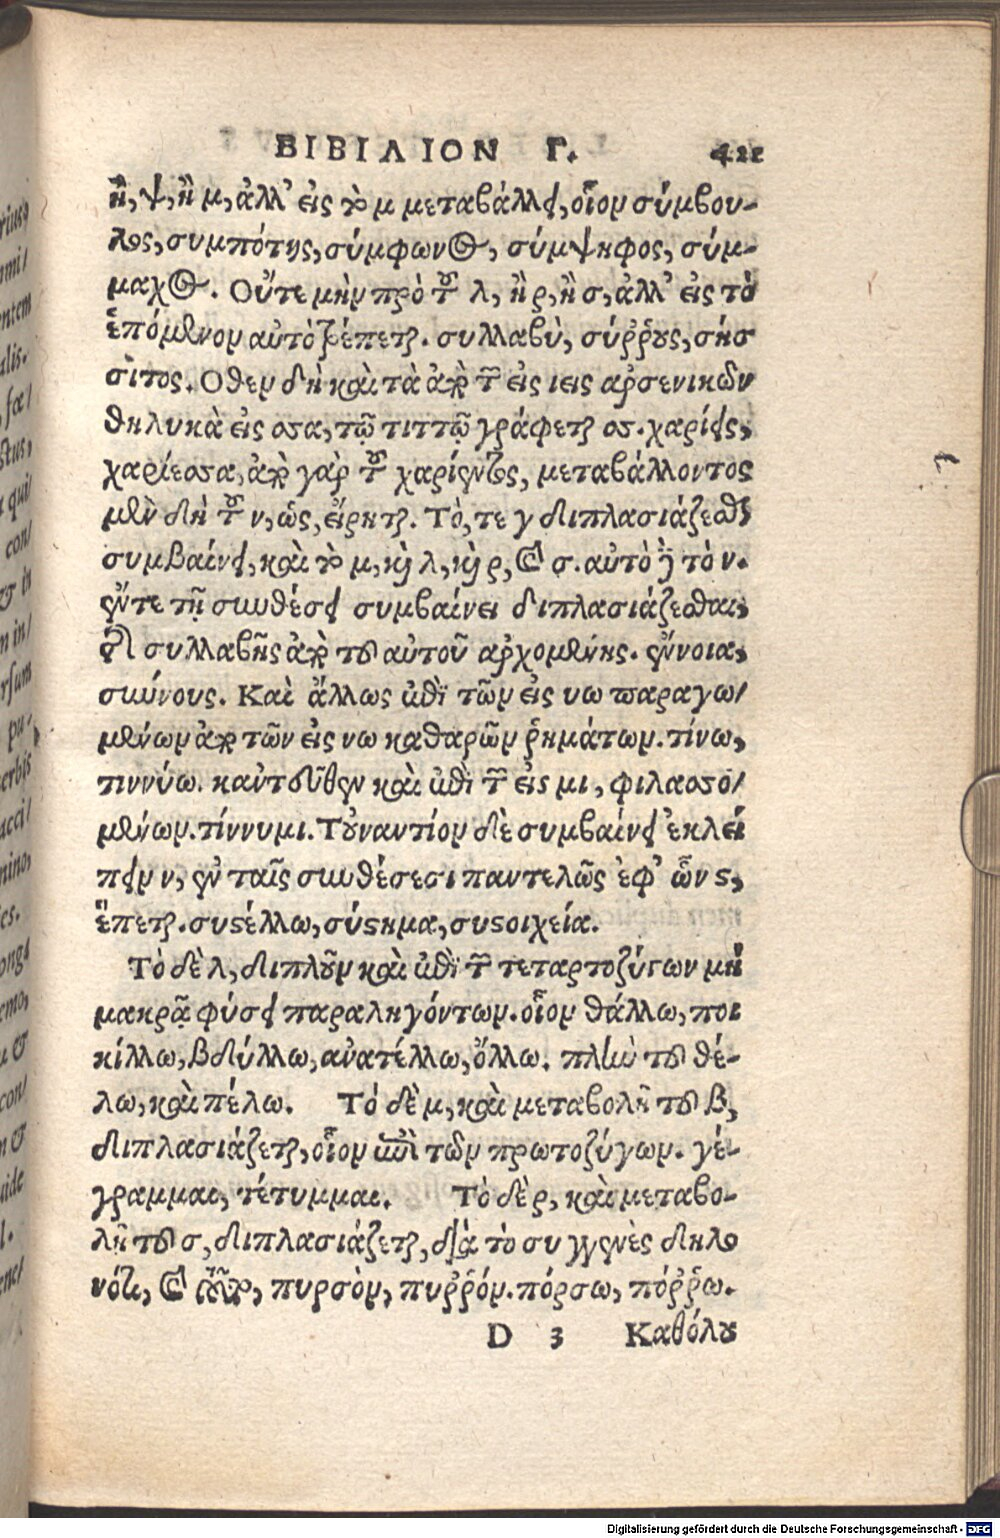 ΒΙΒΙΛΙΟΝ Γ. 421
ἢ, ψ, ἢ μ, ἀλλ' εἰς τὸ μ μεταβάλλει, οἷον σύμβου-
λος, συμπότης, σύμφωνος, σύμψηφος, σύμ-
μαχος. Οὔτε μὴν πρὸ τοῦ λ, ἢ ρ, ἢ σ, ἀλλ' εἰς τὸ
ἑπόμενον αὐτὸ τρέπεται. συλλαβὺ, σύῤῥους, σύσ
σιτος. Οθεν δὴ καὶ τὰ ἀπὸ τῶν εἰς ιεις ἀρσενικῶν
θηλυκὰ εἰς σσα, τῷ τιττῷ γράφεται σσ. χαρίεις,
χαρίεσσα, ἀπὸ γὰρ τοῦ χαρίεντος, μεταβάλλοντος
μὲν δὴ τοῦ ν, ὡς, εἴρηται. Τὸ, τε γ διπλασιάζεσθαι
συμβαίνει, καὶ τὸ μ, καὶ λ, καὶ ρ, καὶ σ. αὐτὸ δὲ τὸ ν.
ἔν τε τῇ συνθέσει συμβαίνει διπλασιάζεσθαι,
συλλαβῆς ἀπὸ τοῦ αὐτοῦ ἀρχομένης. ἔννοια,
σύννους. Καὶ ἄλλως ἐπὶ τῶν εἰς υω παραγω/
μένων ἀπὸ τῶν εἰς νω καθαρῶν ῥημάτων. τίνω,
τιννύω. κἀντεῦθεν καὶ ἐπὶ τῶν εἰς μι, φιλασσο/
μένων. τίννυμι. Τοὐναντίον δὲ συμβαίνει ἐκλεί
πειν ν, ἐν ταῖς συνθέσεσι παντελῶς ἐφ' ὧν ς,
ἕπεται. συςέλλω, σύςημα, συςοιχεία.
Τὸ δὲ λ, διπλοῦν καὶ ἐπὶ τῶν τεταρτοζύγων μὴ
μακρᾷ φύσει παραληγόντων. οἷον θάλλω, ποι
κίλλω, βδύλλω, ἀνατέλλω, ὄλλω. πλὴν τοῦ θέ-
λω, καὶ πέλω. Τό δὲ μ, καὶ μεταβολῇ τοῦ β,
διπλασιάζεται, οἷον ἐπὶ τῶν πρωτοζύγων. γέ-
γραμμαι, τέτυμμαι. Τὸ δὲ ρ, καὶ μεταβο-
λῇ τοῦ σ, διπλασιάζεται, διὰ τὸ συγγενὲς δηλο
νότι, καὶ πυρσὸν, πυῤῥόν. πόρσω, πόῤῥω.
D 3 Καθόλου
Digitalisierung gefördert durch die Deutsche Forschungsgemeinschaft - DFG